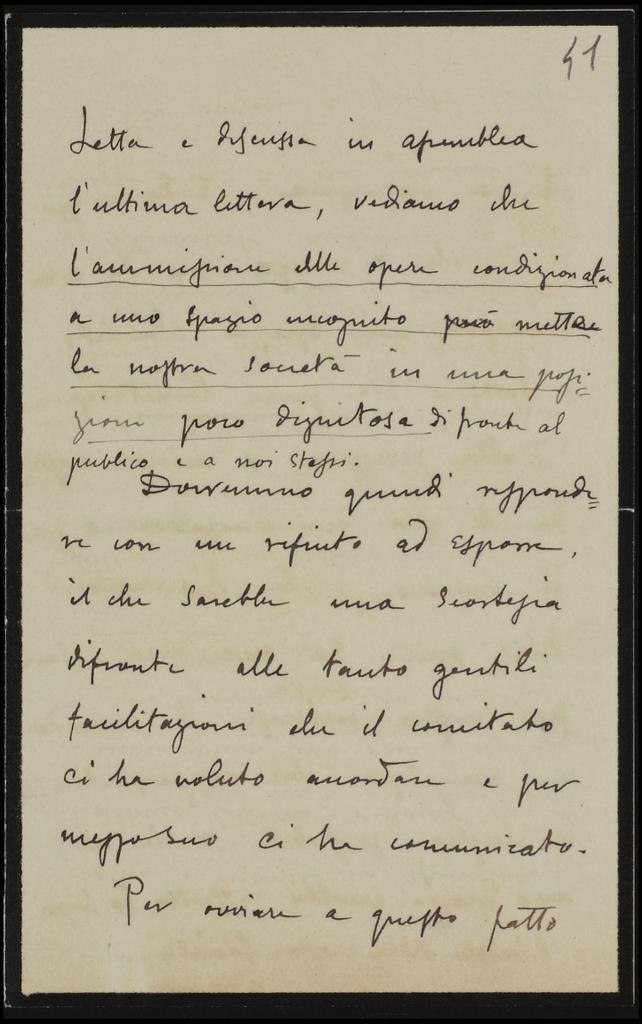 41
Letta e discussa in assemblea
l'ultima lettera, vediamo che
l'ammissione delle opere condizionata
a uno spazio incognito può mettere
la nostra società in una posi=
zione poco dignitosa di fronte al
pubblico e a noi stessi.
Dovremmo quindi risponde=
re con un rifiuto ad esporre,
il che sarebbe una scortesia
difronte alle tanto gentili
facilitazioni che il comitato
ci ha voluto accordare e per
mezzo suo ci ha comunicato.
Per ovviare a questo fatto